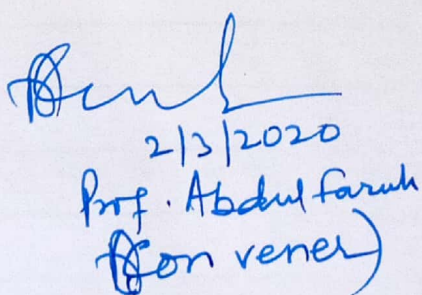 2/3/2020
Prof. Abdul Faruk
(Con vener)